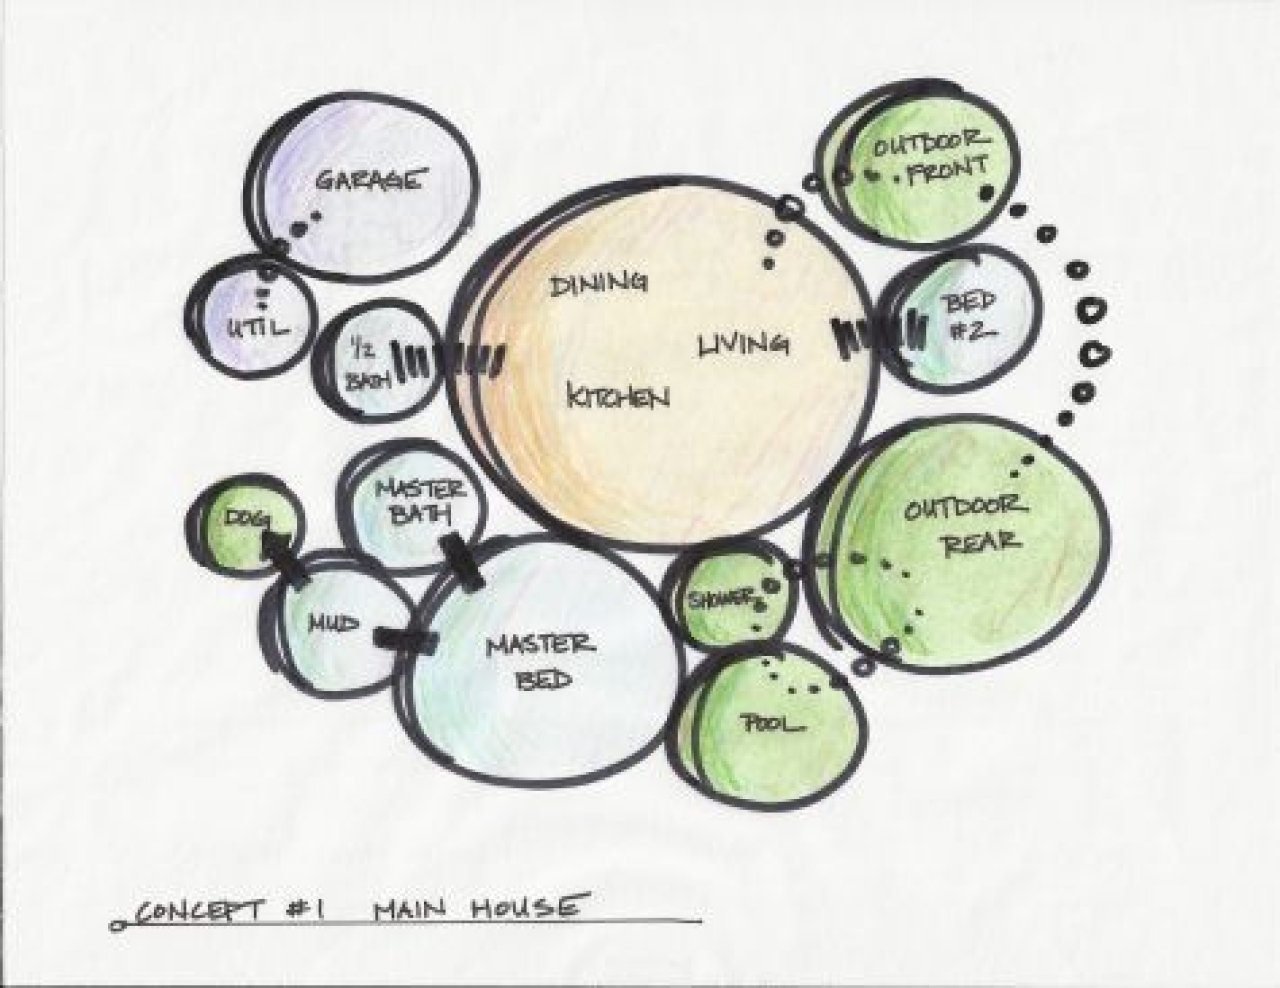 GARAGE
OUTDOOR
FRONT
UTIL
1/2
BATH
DINING
LIVING
KITCHEN
BED
#2
DOG
MASTER
BATH
MUD
MASTER
BED
SHOWER
POOL
OUTDOOR
REAR
CONCEPT #1 MAIN HOUSE